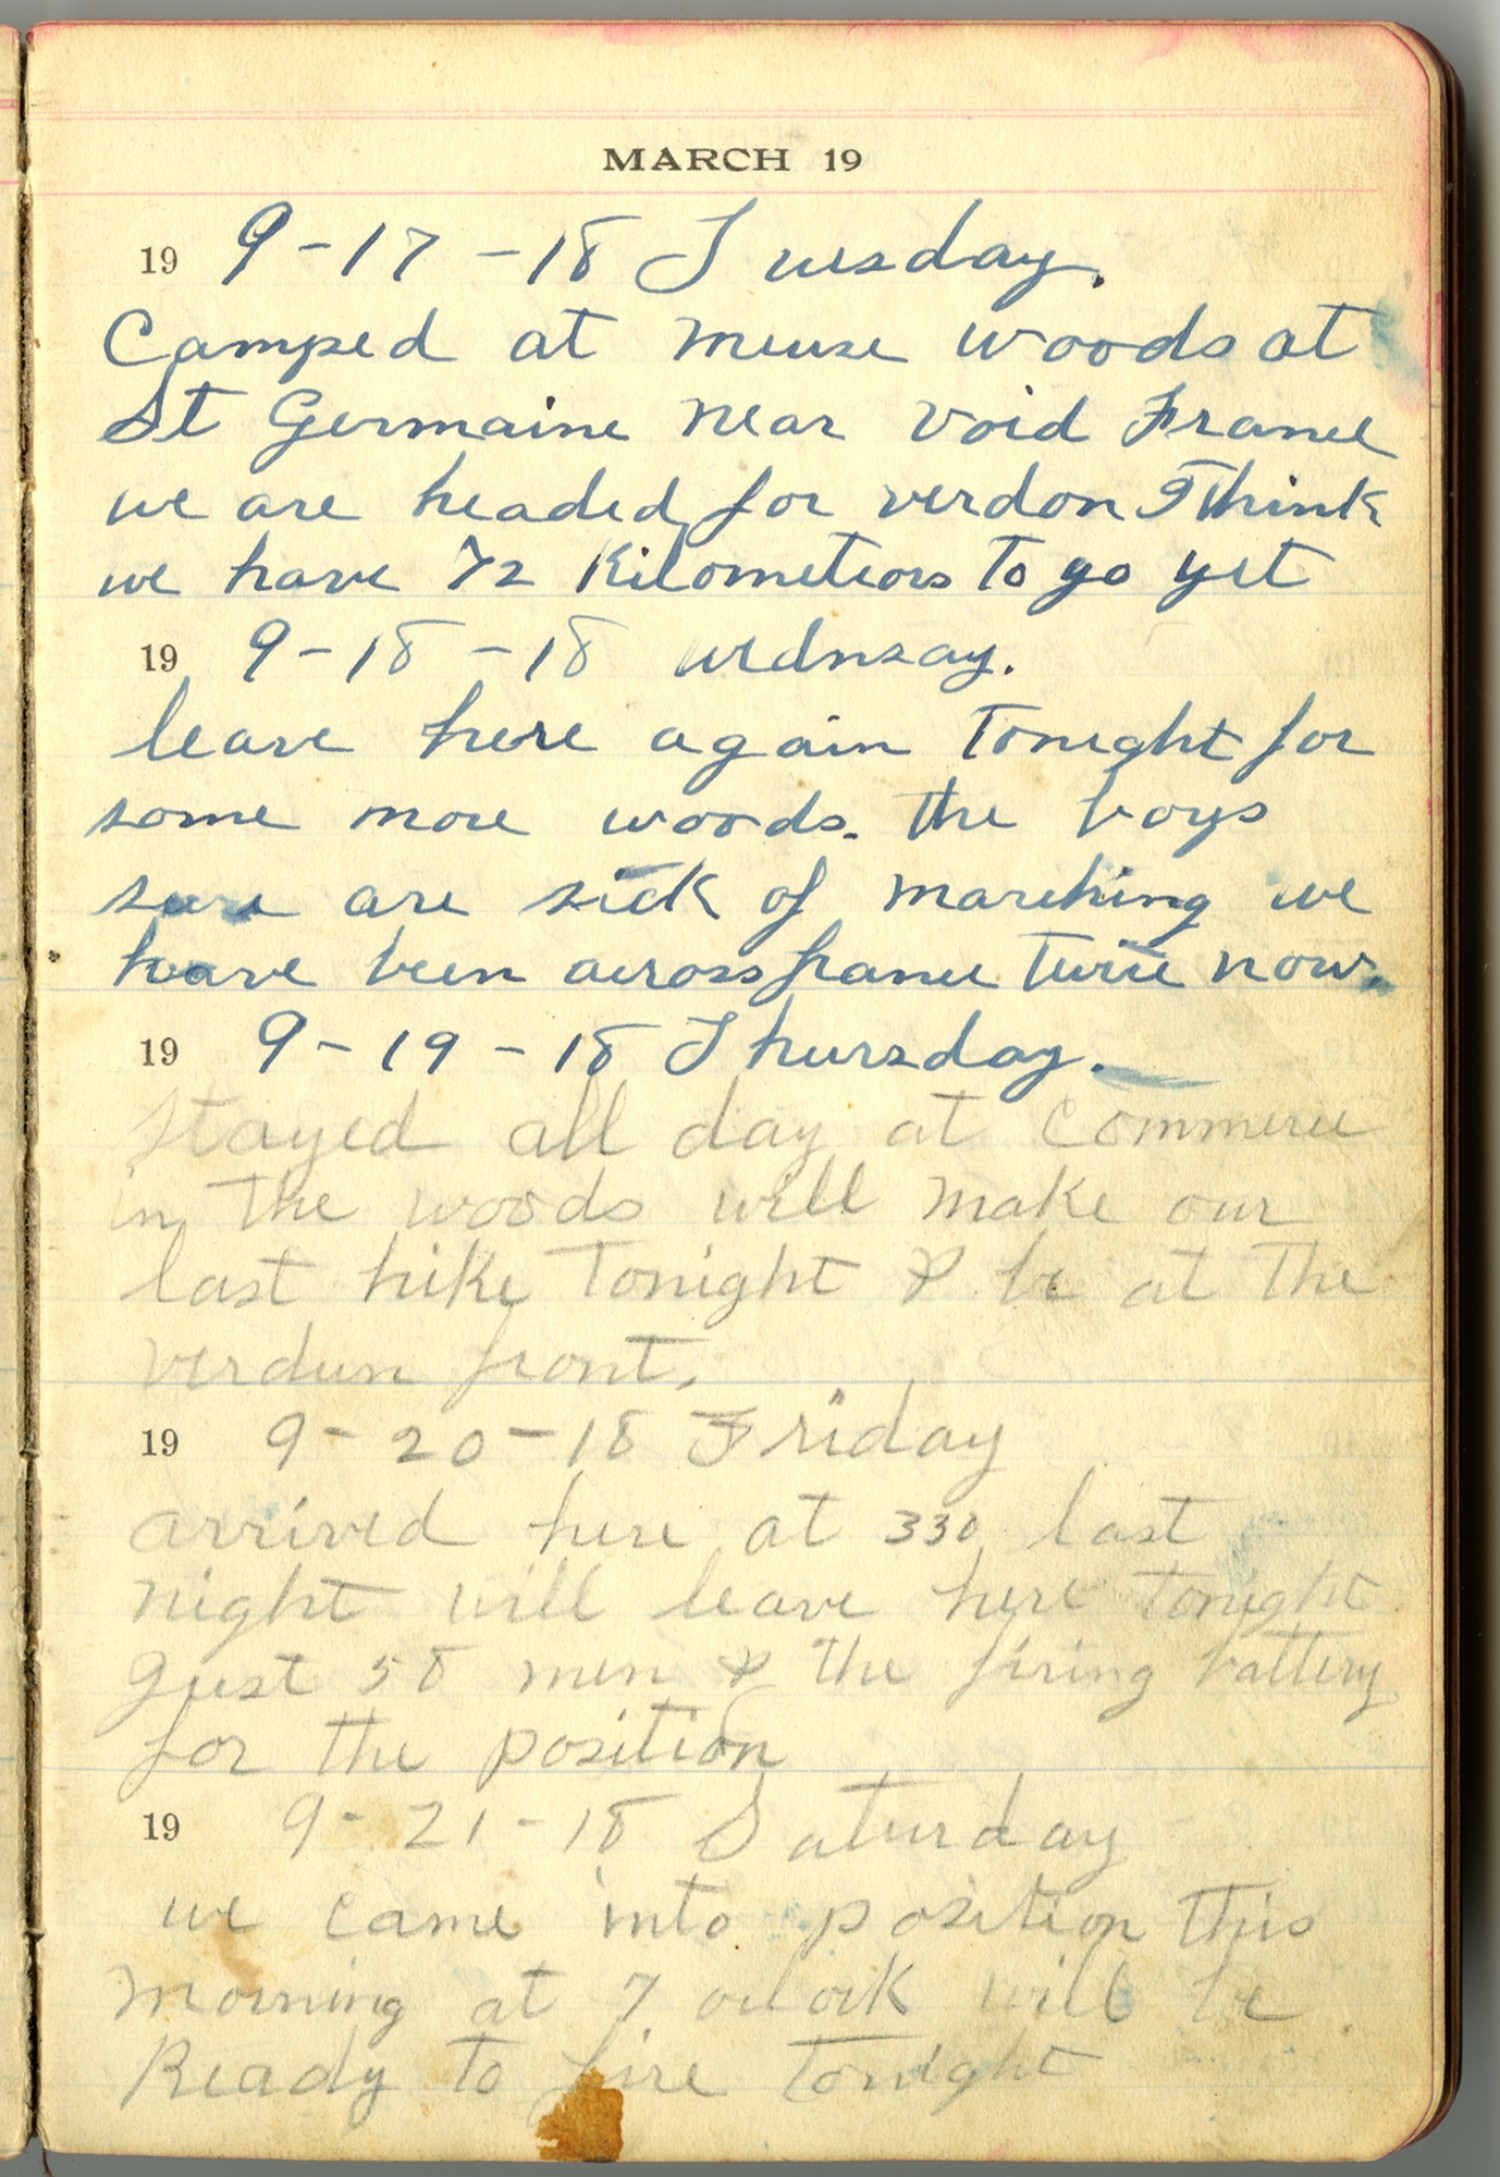 MARCH 19
19 9-17-18 Tuesday.
Camped at Meuse woods at
St Germaine near Void France
we are headed for verdon I Think
we have 72 Kilometeors To go yet
19 9-18-18 wednsay.
leave here again Tonight for
some more woods. The boys
sure are sick of marching we
have been across france Twice now.
19 9-19-18 Thursday.
stayed all day at Commerce
in The woods will make our
last hike Tonight & be at The
verdun front.
19 9-20-18 Friday
arrived here at 330 last
night will leave here tonight
Just 58 men & the firing battery
for the position
19 9-21-18 Saturday
we came into position This
morning at 7 oclock will be
Ready to fire Tonight